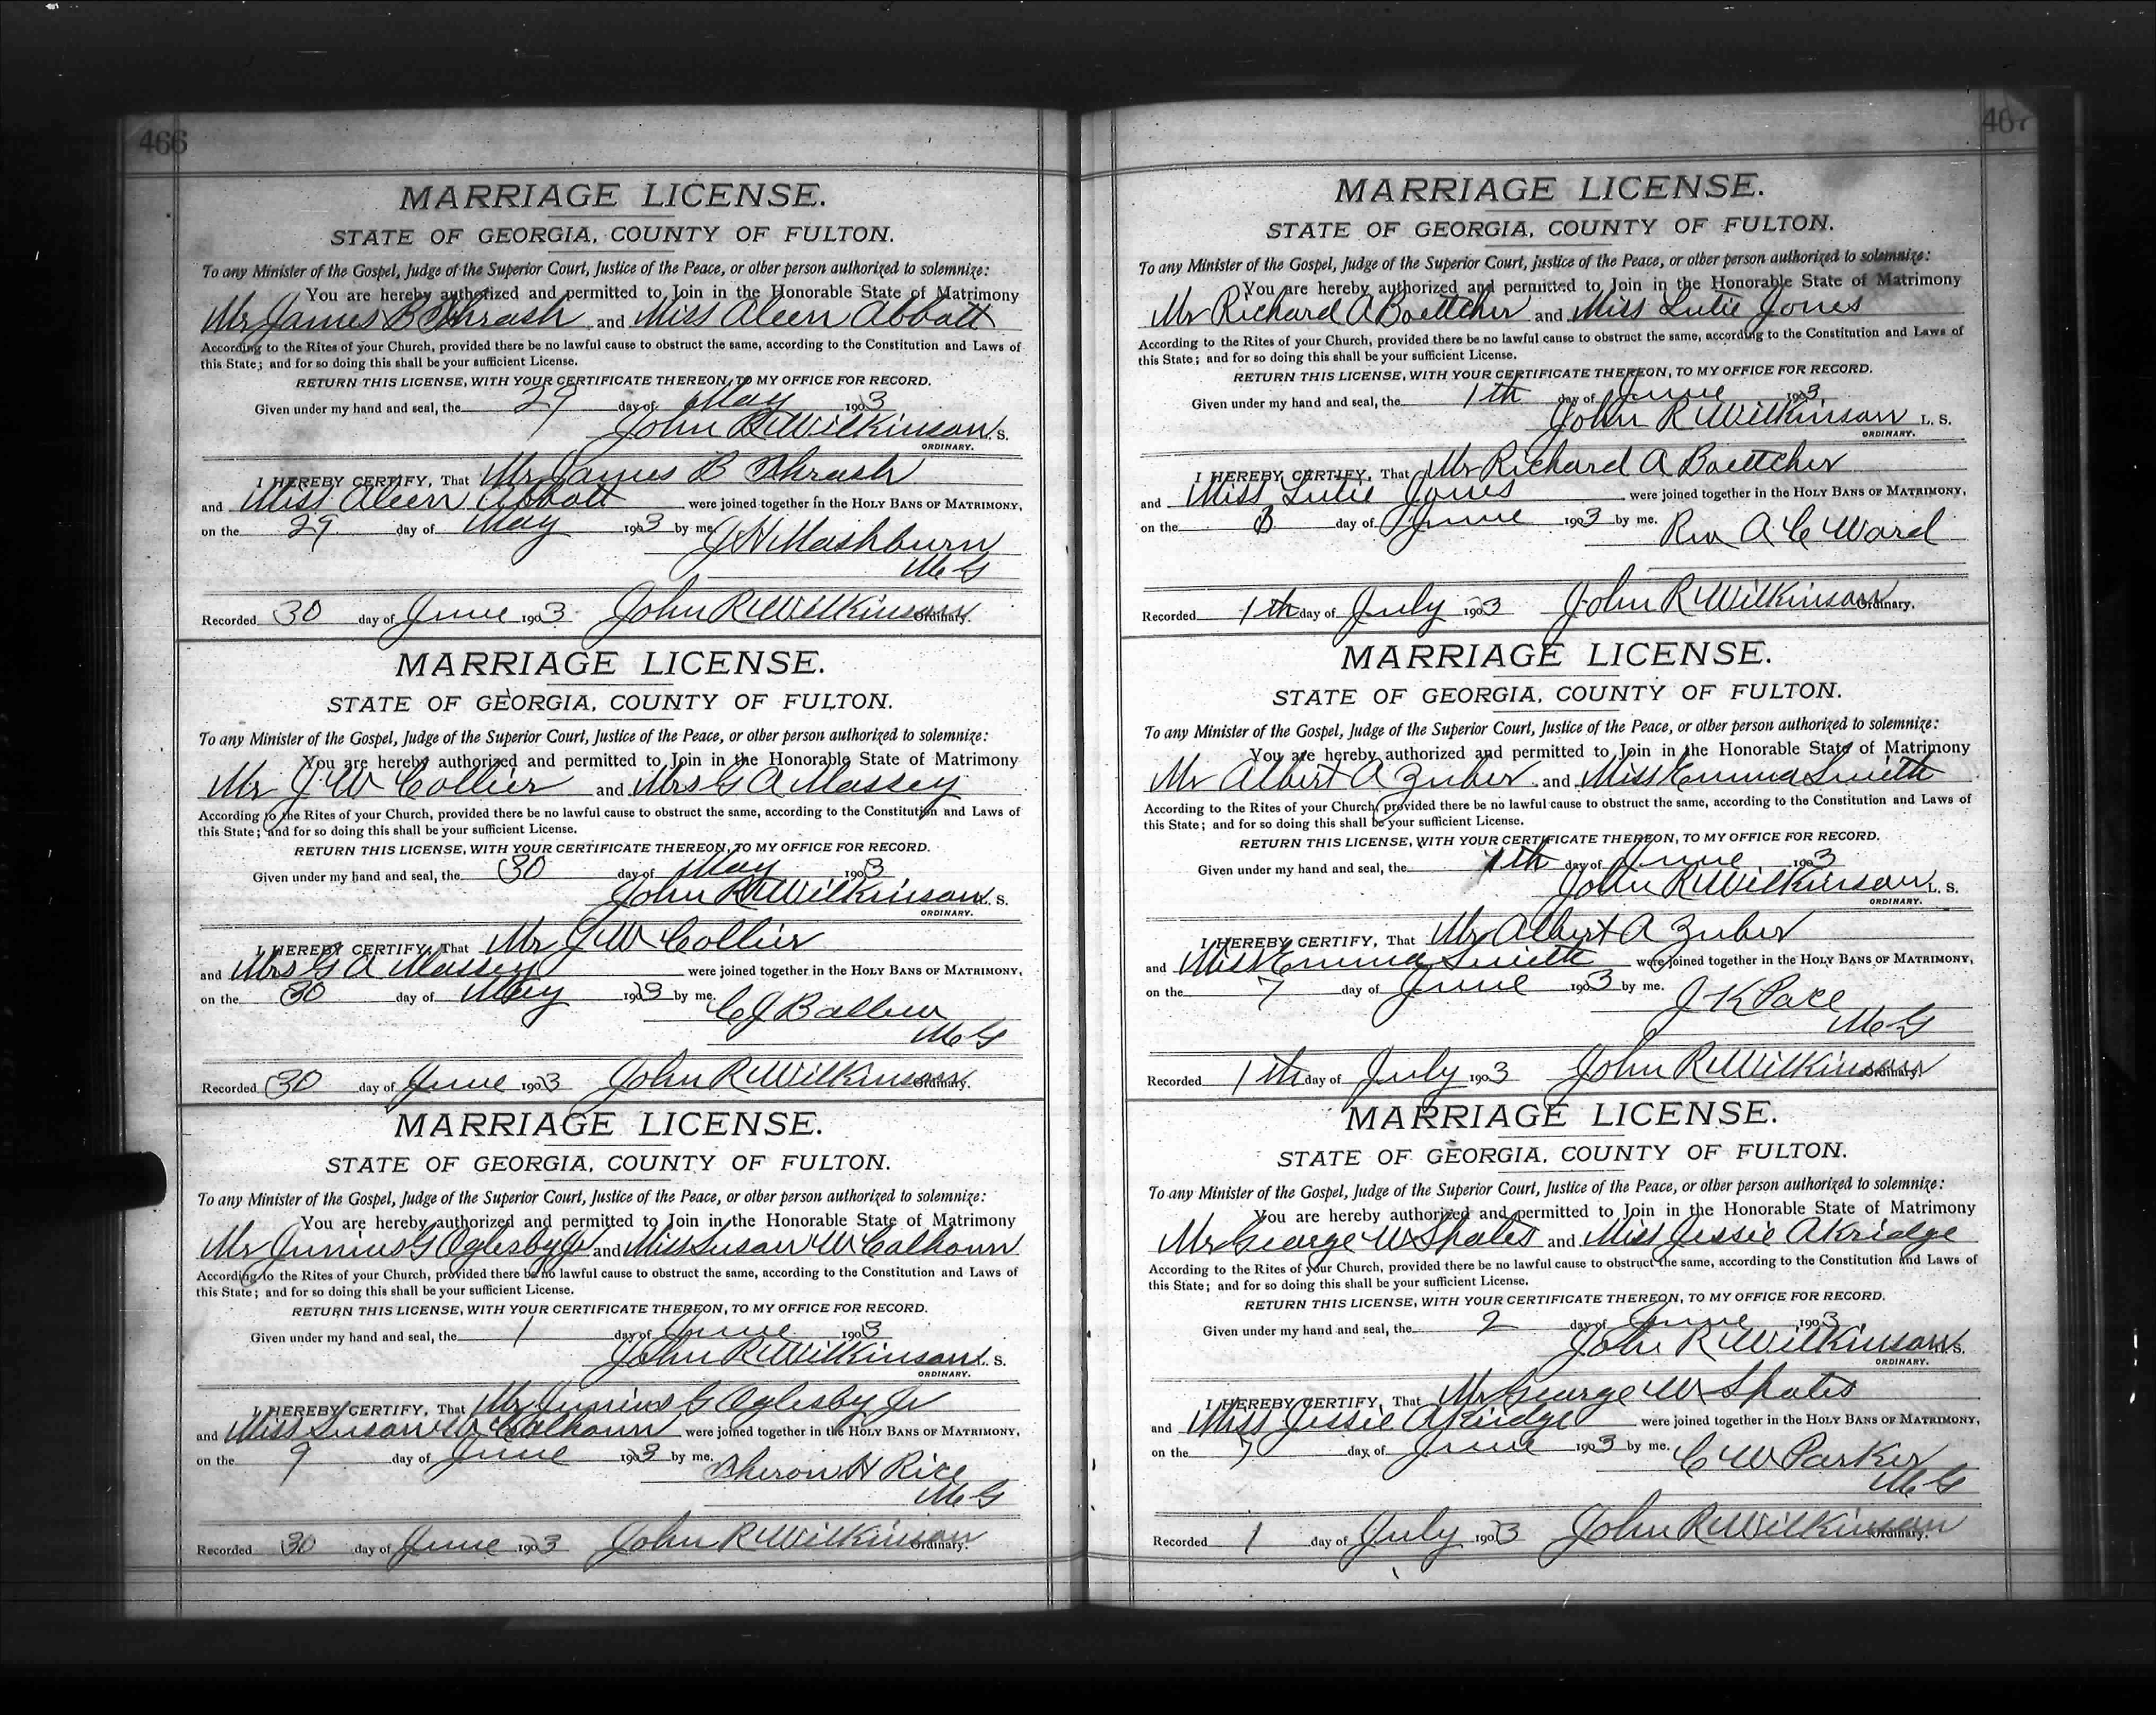 466
MARRIAGE LICENSE.
STATE OF GEORGIA, COUNTY OF FULTON.
To any Minister of the Gospel, Judge of the Superior Court, Justice of the Peace, or other person authorized to solemnize:
You are hereby authorized and permitted to Join in the Honorable State of Matrimony
Mr James B Thrash and Miss Aleen Abbott
According to the Rites of your Church, provided there be no lawful cause to obstruct the same, according to the Constitution and Laws of
this State; and for so doing this shall be your sufficient License.
RETURN THIS LICENSE, WITH YOUR CERTIFICATE THEREON, TO MY OFFICE FOR RECORD.
Given under my hand and seal, the 29 day of May 1903
John R Wilkinson L. S.
ORDINARY.
I HEREBY CERTIFY, That Mr James B Thrash
and Miss Aleen Abbott were joined together in the HOLY BANS OF MATRIMONY,
on the 29 day of May 1903 by me J H Mashburn
M G
Recorded 30 day of June 1903 John R Wilkinson Ordinary.
MARRIAGE LICENSE.
STATE OF GEORGIA, COUNTY OF FULTON.
To any Minister of the Gospel, Judge of the Superior Court, Justice of the Peace, or other person authorized to solemnize:
You are hereby authorized and permitted to Join in the Honorable State of Matrimony
Mr J W Collier and Mrs G A Massey
According to the Rites of your Church, provided there be no lawful cause to obstruct the same, according to the Constitution and Laws of
this State; and for so doing this shall be your sufficient License.
RETURN THIS LICENSE, WITH YOUR CERTIFICATE THEREON, TO MY OFFICE FOR RECORD.
Given under my hand and seal, the 30 day of May 1903
John R Wilkinson L. S.
ORDINARY.
I HEREBY CERTIFY, That Mr J W Collier
and Mrs G A Massey were joined together in the HOLY BANS OF MATRIMONY,
on the 30 day of May 1903 by me. C J
M G
Recorded 30 day of June 1903 John R Wilkinson Ordinary.
MARRIAGE LICENSE.
STATE OF GEORGIA, COUNTY OF FULTON.
To any Minister of the Gospel, Judge of the Superior Court, Justice of the Peace, or other person authorized to solemnize:
You are hereby authorized and permitted to Join in the Honorable State of Matrimony
Mr Junius G Oglesby Jr and Miss Susan W Calhoun
According to the Rites of your Church, provided there be no lawful cause to obstruct the same, according to the Constitution and Laws of
this State; and for so doing this shall be your sufficient License.
RETURN THIS LICENSE, WITH YOUR CERTIFICATE THEREON, TO MY OFFICE FOR RECORD.
Given under my hand and seal, the 1 day of June 1903
John R Wilkinson L. S.
ORDINARY.
I HEREBY CERTIFY, That Mr Junius G Oglesby Jr
and Miss Susan W Calhoun were joined together in the HOLY BANS OF MATRIMONY,
on the 9 day of June 1903 by me. Theron H Rice
M G
Recorded 30 day of June 1903 John R Wilkinson Ordinary.
467
MARRIAGE LICENSE.
STATE OF GEORGIA, COUNTY OF FULTON.
To any Minister of the Gospel, Judge of the Superior Court, Justice of the Peace, or other person authorized to solemnize:
You are hereby authorized and permitted to Join in the Honorable State of Matrimony
Mr Richard A Boettcher and Miss Lutie Jones
According to the Rites of your Church, provided there be no lawful cause to obstruct the same, according to the Constitution and Laws of
this State; and for so doing this shall be your sufficient License.
RETURN THIS LICENSE, WITH YOUR CERTIFICATE THEREON, TO MY OFFICE FOR RECORD.
Given under my hand and seal, the 1th day of June 1903
John R Wilkinson L. S.
ORDINARY.
I HEREBY CERTIFY, That Mr Richard A Boettcher
and Miss Lutie Jones were joined together in the HOLY BANS OF MATRIMONY,
on the 3 day of June 1903 by me. Rev A C Ward
Recorded 1th day of July 1903 John R Wilkinson Ordinary.
MARRIAGE LICENSE.
STATE OF GEORGIA, COUNTY OF FULTON.
To any Minister of the Gospel, Judge of the Superior Court, Justice of the Peace, or other person authorized to solemnize:
You are hereby authorized and permitted to Join in the Honorable State of Matrimony
Mr Albert A Zuber and Miss Emma Smith
According to the Rites of your Church, provided there be no lawful cause to obstruct the same, according to the Constitution and Laws of
this State; and for so doing this shall be your sufficient License.
RETURN THIS LICENSE, WITH YOUR CERTIFICATE THEREON, TO MY OFFICE FOR RECORD.
Given under my hand and seal, the 1th day of June 1903
John R Wilkinson L. S.
ORDINARY.
I HEREBY CERTIFY, That Mr Albert A Zuber
and Miss Emma Smith were joined together in the HOLY BANS OF MATRIMONY,
on the 7 day of June 1903 by me. J K Pace
M G
Recorded 1th day of July 1903 John R Wilkinson Ordinary.
MARRIAGE LICENSE.
STATE OF GEORGIA, COUNTY OF FULTON.
To any Minister of the Gospel, Judge of the Superior Court, Justice of the Peace, or other person authorized to solemnize:
You are hereby authorized and permitted to Join in the Honorable State of Matrimony
Mr George W Shates and Miss Jessie Akridge
According to the Rites of your Church, provided there be no lawful cause to obstruct the same, according to the Constitution and Laws of
this State; and for so doing this shall be your sufficient License.
RETURN THIS LICENSE, WITH YOUR CERTIFICATE THEREON, TO MY OFFICE FOR RECORD.
Given under my hand and seal, the 2 day of June 1903
John R Wilkinson L. S.
ORDINARY.
I HEREBY CERTIFY, That Mr George W Shates
and Miss Jessie Akridge were joined together in the HOLY BANS OF MATRIMONY,
on the 7 day of June 1903 by me. C W Parker
M G
Recorded 1 day of July 1903 John R Wilkinson Ordinary.